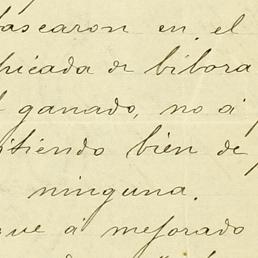 ascaron en el
picada de bibora
ganado, no á
itiendo bien de
ninguna.
que á mejorado